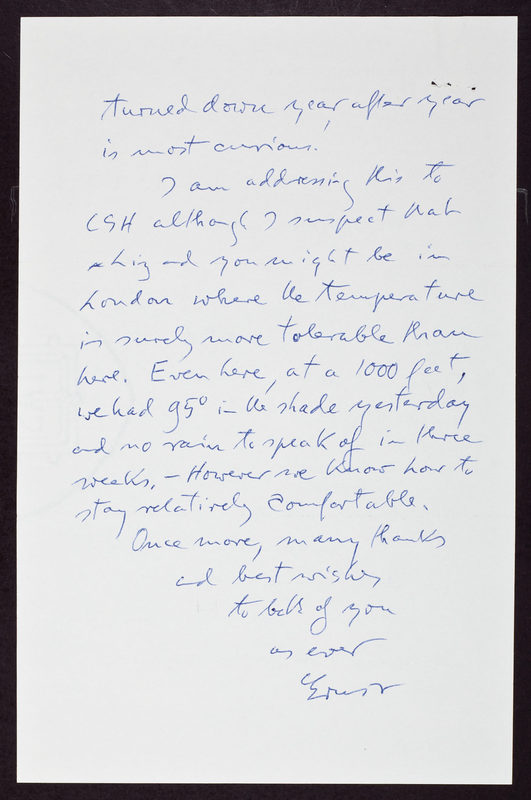 turned down year after year
is most curious!
I am addressing this to
CSH although I suspect that
Liz and you might be in
London where the temperature
is surely more tolerable than
here. Even here, at a 1000 feet,
we had 95° in the shade yesterday
and no rain to speak of in three
weeks. – However we know how to
stay relatively comfortable.
Once more, many thanks
and best wishes
to both of you
as ever
Ernst